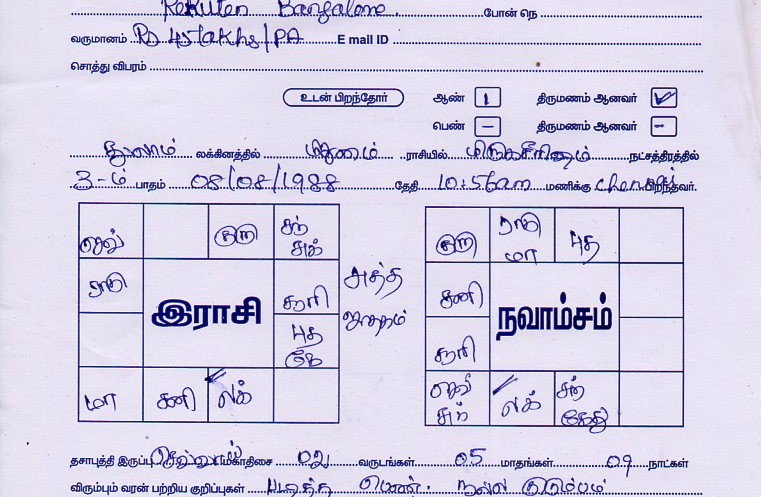 Rakuten Bangalore. போன் நெ
வருமானம் Rs 45 lakhs/PA E mail ID
சொத்து விபரம்
உடன் பிறந்தோர் ஆண் 1 திருமணம் ஆனவர் ✓
பெண் – திருமணம் ஆனவர் –
துலாம் லக்கினத்தில் மிதுனம் ராசியில் மிருகசீரிஷம் நட்சத்திரத்தில்
3-ம் பாதம் 08/08/1988 தேதி 10:56am மணிக்கு chennai பிறந்தவர்.
செவ் குரு சந் சுக்
ராகு
சூரி
புத கே
மா சனி லக்
இராசி
சுத்த ஜாதகம்
குரு ராகு மா புத
சனி
சூரி
செவ் சுக் லக் சந் கேது
நவாம்சம்
தசாபுத்தி இருப்பு செவ்வாய் மகாதிசை 02 வருடங்கள் 05 மாதங்கள் 09 நாட்கள்
விரும்பும் வரன் பற்றிய குறிப்புகள் படித்த பெண். நல்ல குடும்பம்